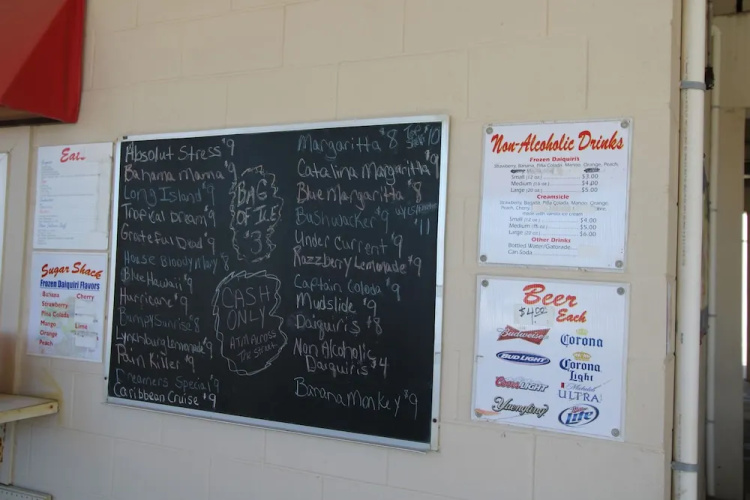 Eat
Sugar Shack
Frozen Daiquiri Flavors
Banana Cherry
Strawberry
Piña Colada
Mango Lime
Orange
Peach
Absolut Stress $9
Bahama Mama $9
Long Island $9
Tropical Dream $9
Grateful Dead $9
House Bloody Mary $8
Blue Hawaii $9
Hurricane $9
Bumpy Sunrise $8
Lynchburg Lemonade $9
Pain Killer $9
Dreamers Special $9
Caribbean Cruise $9
BAG
OF ICE
CASH
ONLY
ATM ACROSS
THE STREET
Margaritta $8 Top Shelf $10
Catalina Margaritta $9
Blue Margaritta $8
Bushwacker $9
11
Under Current $9
Razzberry Lemonade $9
Captain Colada $9
Mudslide $9
Daiquiris $8
Non Alcoholic
Daiquiris $4
Banana Monkey $9
Non-Alcoholic Drinks
Frozen Daiquiris
Strawberry, Banana, Piña Colada, Mango, Orange, Peach,
Small (12 oz.) $3.00
Medium (16 oz.) $4.00
Large (20 oz.) $5.00
Creamsicle
Strawberry, Banana, Piña Colada, Mango, Orange,
Peach, Cherry
Small $4.00
Medium $5.00
Large $6.00
Other Drinks
Bottled Water/Gatorade
Can Soda
Beer
$4.00 Each
Budweiser
Corona
BUD LIGHT
Corona
Light
Coors LIGHT
Michelob
ULTRA
Yuengling
Lite